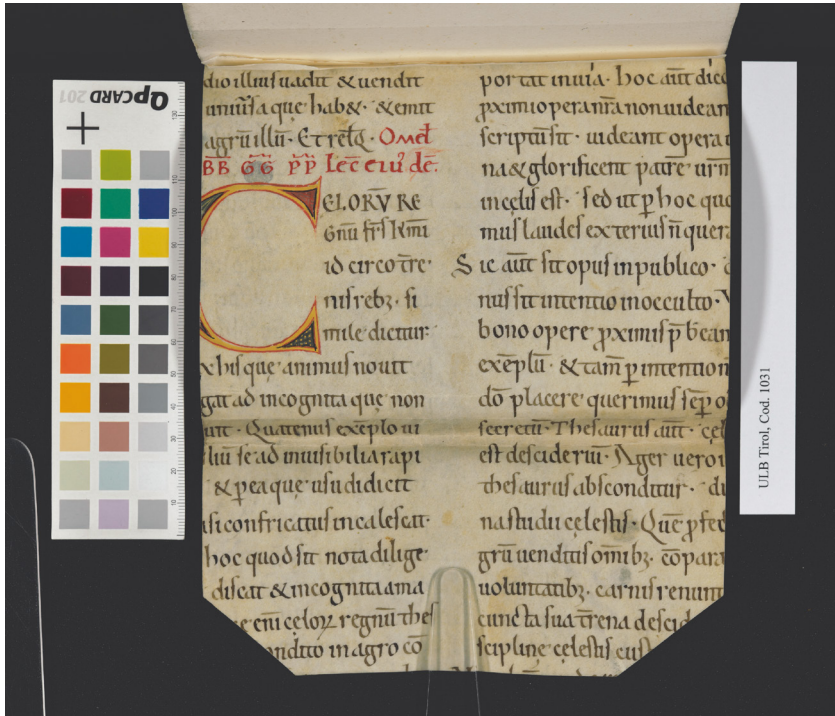 dio illius uadit & uendit
uniũsa que hab&· &emit
agrũ illũ· Et relq̃· Omel̃
B̃B G̃G P̃P Lec̃c eiuͥ dẽ:
CELORV̄ RE
Gnũ fr̃s k̃mi
id circo t̃re·
nis reb; · si
mile dicitur·
x his que animus nouit
gat ad incognita que non
uit· Quatenus exẽplo ui
liũ se ad inuisibilia rapi
& p ea que usu didicit
si confricatus incalescat·
hoc quod scit nota dilige
discat & incognita ama
e eni celoꝝ regnũ thes
ondito in agro cõ
portat in uia· hoc aũt dic
ꝓximi opera nr̃a non uidean
scriptũ sit· uideant opera
na & glorificent patrẽ ur̃m
in celis est· sed ut p̱ hoc quo
mus laudes exterius ñ quer
Sic aũt sit opus in publico·
nus sit intentio in occulto·
bono opere ꝓximis p̃beam
exẽplũ· & tam̃ p̱ intention
dõ placere querimus sẽp o
secretũ· Thesaurus aũt· cel
est desideriũ· Ager uero i
thesaurus absconditur· di
na studii celestis· Quẽ ꝓfec
grũ uenditis om̃ib;· cõpara
uoluntatib;· carnis renunt
cuncta sua t̃rena desid
scipline celestis cus
QPCARD 201
ULB Tirol, Cod. 1031